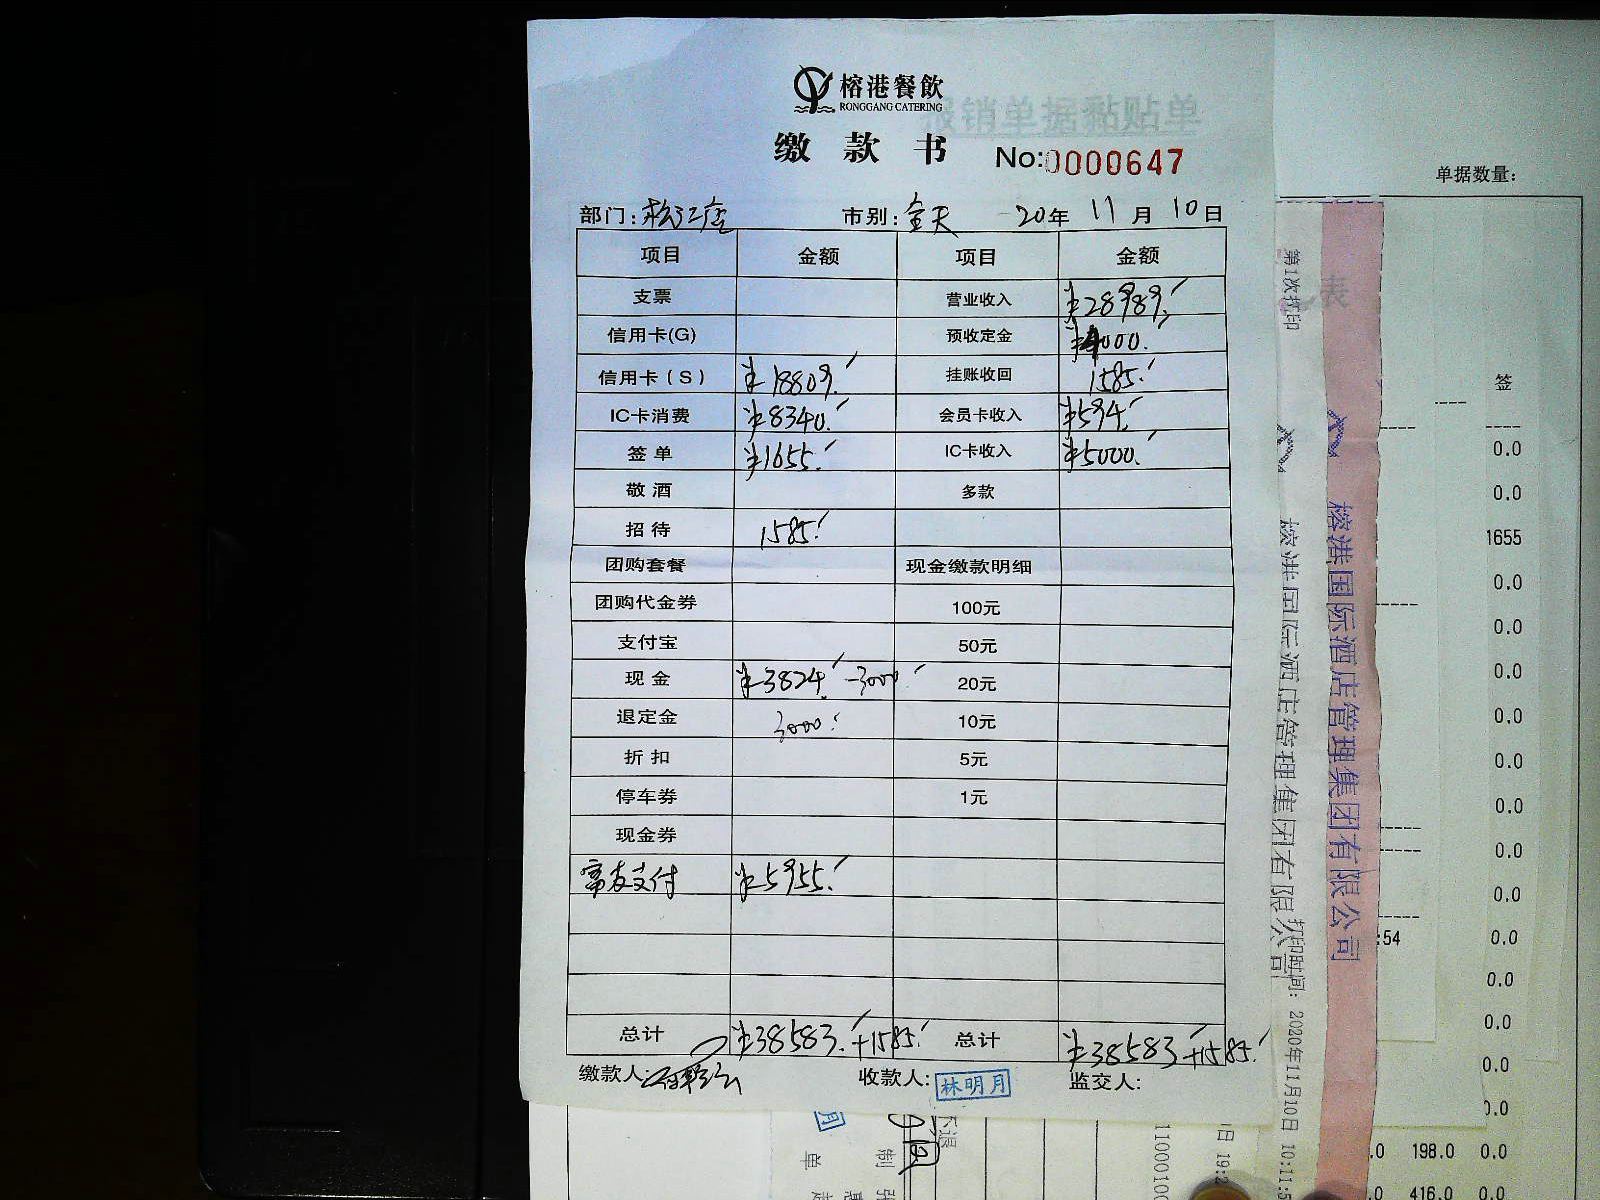 榕港餐飲
RONGGANG CATERING
报销单据黏贴单
缴 款 书 No:0000647
单据数量:
部门:松江店 市别:全天 20年 11月 10日
项目 金额 项目 金额
支票 营业收入 ¥28989.
信用卡(G) 预收定金 ¥4000.
信用卡(S) ¥18809. 挂账收回 1585.
IC卡消费 ¥8340. 会员卡收入 ¥594.
签单 ¥1655. IC卡收入 ¥5000.
敬酒 多款
招待 1585.
团购套餐 现金缴款明细
团购代金券 100元
支付宝 50元
现金 ¥3824. -3000. 20元
退定金 3000. 10元
折扣 5元
停车券 1元
现金券
富友支付 ¥5955.
总计 ¥38583.+1585. 总计 ¥38583+1585.
缴款人: 收款人:林明月 监交人:
第1次打印
榕港国际酒店管理集团有限公司
打印时间: 2020年11月10日 10:11:5
榕港国际酒店管理集团有限公司
表
签
0.0
0.0
1655
0.0
0.0
0.0
0.0
0.0
0.0
0.0
0.0
:54 0.0
0.0
0.0
0.0
0.0
.0 198.0 0.0
.0 416.0 0.0
月
不退
制
单
1100010
日 19:2